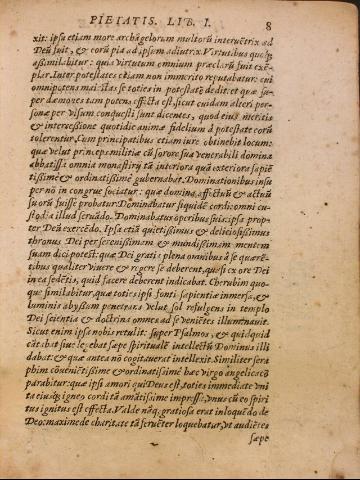 PIETATIS. LIB. I. 8
xit: ipsa etiam more archāgelorum multorū interuētrix ad
Deū fuit, & eorū pia ad ipsum adiutrix. Virtutibus quoq;
assimilabitur: quia virtutum omnium præclarū fuit exē-
plar. Inter potestates etiam non immerito reputabatur: cui
omnipotens maiestas se toties in potestatē dedit. et quæ su-
per dæmones tam potens effecta est, sicut cuidam alteri per-
sonæ per visum conquesti sunt dicentes, quod eius meritis
& intercessione quotidie animæ fidelium à potestate eorū
tolerentur. Cum principatibus etiam iure obtinebit locum:
quæ velut princeps militiæ cū sorore sua venerabili domina
abbatissa omnia monasterij tā interiora quā exteriora sapiē
tissimè & ordinatissimè gubernabat. Dominationibus insu
per nō in congrue sociatur: quæ domina affectuū & actuū
suorū fuisse probatur. Dominabatur siquidē cordi: omni cu-
stodia illud seruādo. Dominabatur operibus suis: ipsa prop-
ter Deū exercēdo. Ipsa etiā quietissimus & deliciosissimus
thronus Dei per serenissimam & mundissimam mentem
suam dici potest: quæ Dei gratia plena omnibus à se quærē-
tibus qualiter viuere & regere se deberent, quasi ex ore Dei
in ea sedētis, quid facere deberent indicabat. Cherubim quo-
que similabitur, quæ toties ipsi fonti sapientiæ inmersa, &
luminis abyssum penetrans velut sol refulgens in templo
Dei scientia & doctrina omnes ad se veniētes illuminauit.
Sicut enim ipsa nobis retulit: super Psalmos, & quidquid
cātabat siue legebat sæpe spiritualē intellectū Dominus illi
dabat: & quæ antea nō cogitauerat intellexit. Similiter sera
phim cōuenientissime & ordinatissimè hæc virgo angelica cō
parabitur: quæ ipsi amori qui Deus est, toties immediate vni
ta eiusq; igneo cordi tā amātissime impressa, vnus cū eo spiri
tus ignitus est effecta. Valde nāq; gratiosa erat in loquēdo de
Deo: maxime de charitate tā feruēter loquebatur, vt audiētes
sæpe